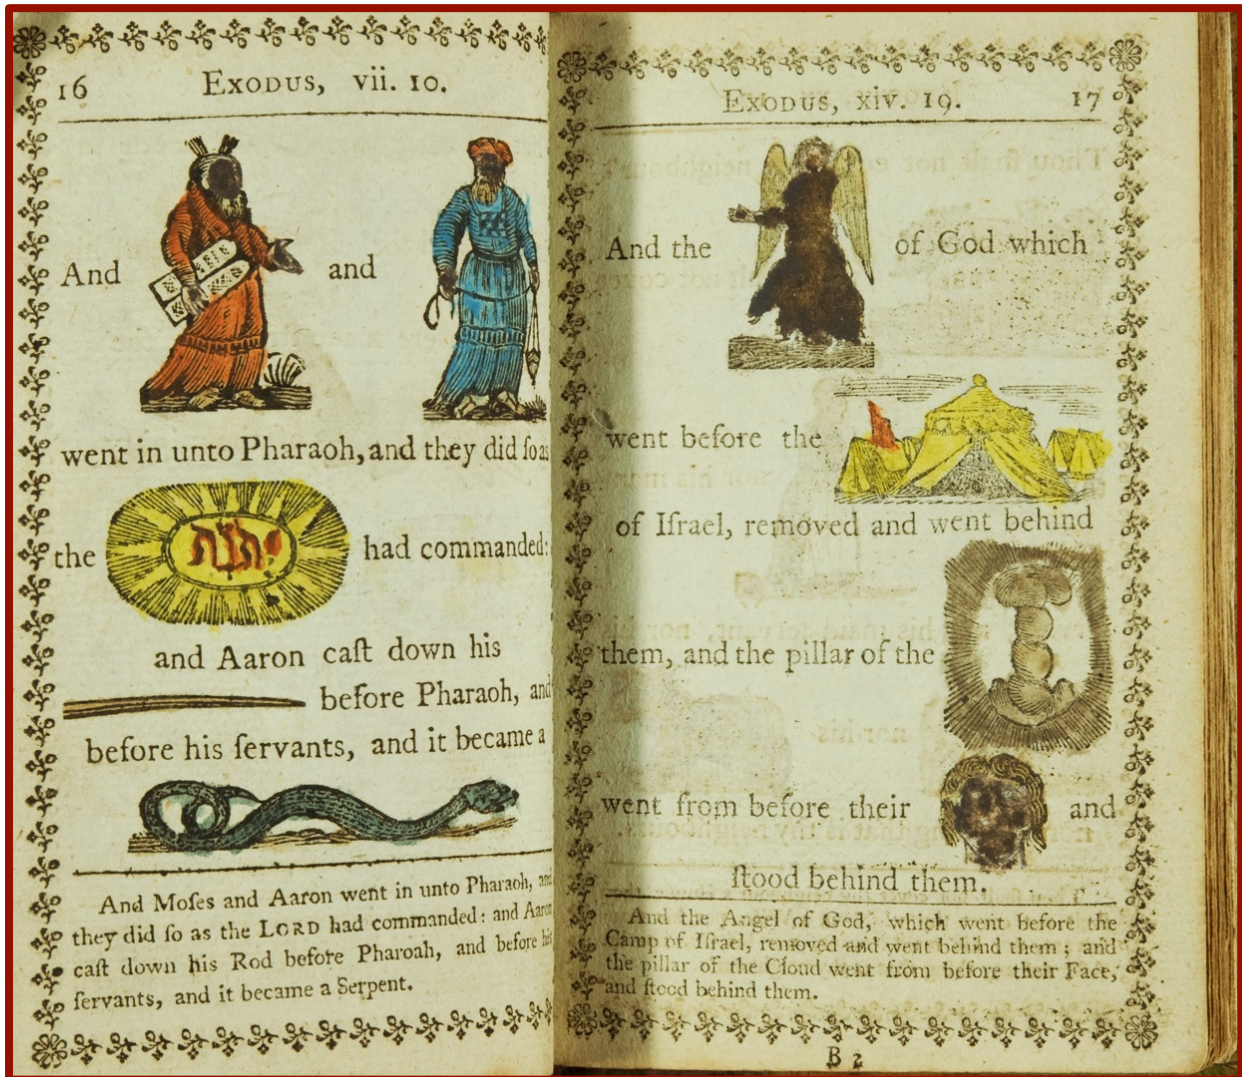 16 EXODUS, vii. 10.
And and
went in unto Pharaoh, and they did ſo as
the יהוה had commanded:
and Aaron caſt down his
before Pharaoh, and
before his ſervants, and it became a
And Moſes and Aaron went in unto Pharaoh, and
they did ſo as the LORD had commanded: and Aaron
caſt down his Rod before Pharoah, and before his
ſervants, and it became a Serpent.
EXODUS, xiv. 19. 17
And the of God which
went before the
of Iſrael, removed and went behind
them, and the pillar of the
went from before their and
ſtood behind them.
And the Angel of God, which went before the
Camp of Iſrael, removed and went behind them; and
the pillar of the Cloud went from before their Face,
and ſtood behind them.
B 2